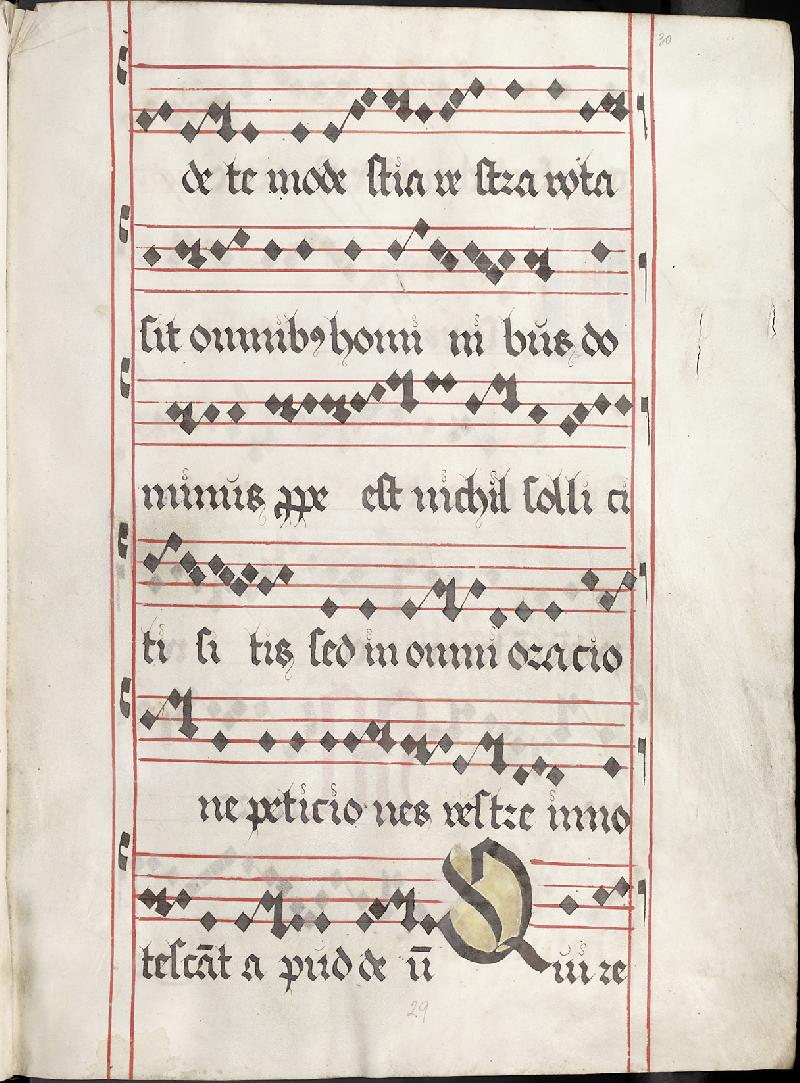 30
de te mode stia ve stra nota
sit omnibꝰ homi ni bus do
minus ꝓpe est nichil solli ci
ti si tis sed in omni oracio
ne peticio nes vestre inno
tescāt a pud de ū Qui re
29